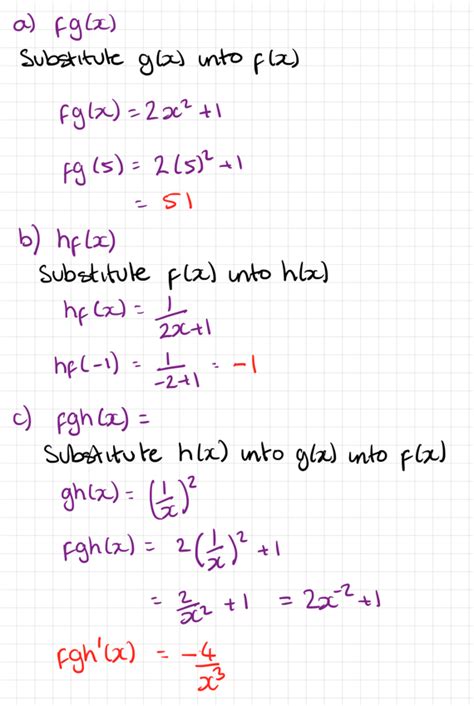 a) fg(x)
Substitute g(x) into f(x)
fg(x) = 2x² + 1
fg(5) = 2(5)² + 1
= 51
b) hf(x)
Substitute f(x) into h(x)
hf(x) = 1/(2x+1)
hf(-1) = 1/(-2+1) = -1
c) fgh(x) =
Substitute h(x) into g(x) into f(x)
gh(x) = (1/x)²
fgh(x) = 2(1/x)² + 1
= 2/x² + 1 = 2x⁻² + 1
fgh'(x) = -4/x³